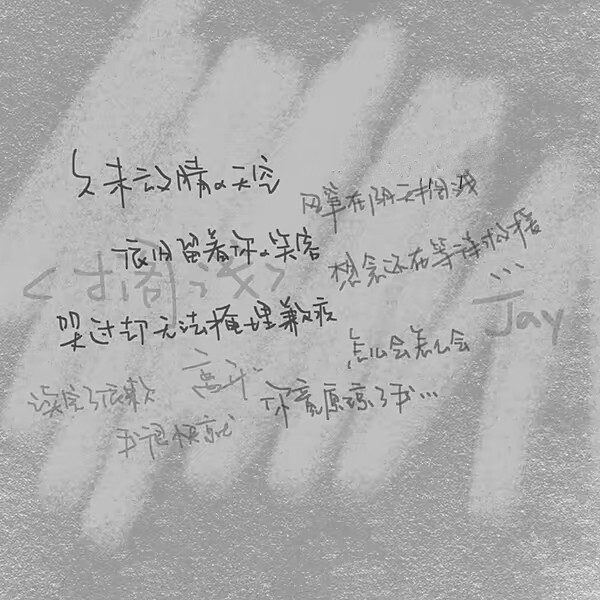 久未放晴的天空
风筝在阴天搁浅
依旧留着你的笑容
想念还在等待救援
<搁浅>
...
—Jay
哭过却无法掩埋歉疚
怎么会怎么会
读完了依赖
离开
你竟原谅了我...
我很快就